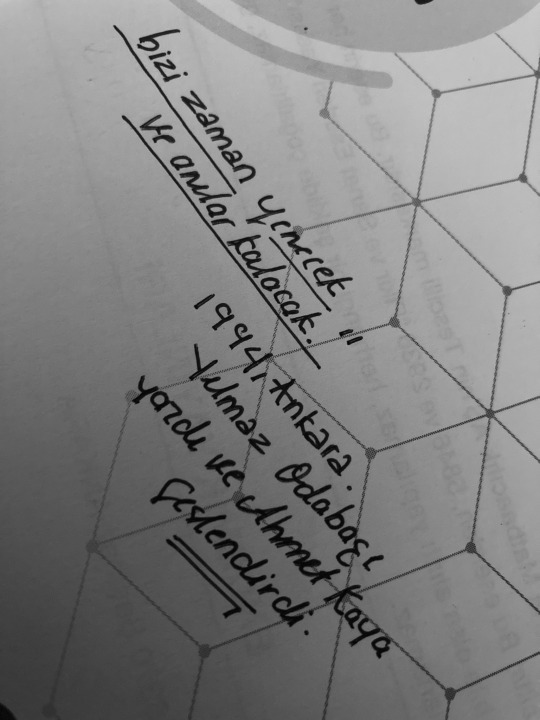 bizi zaman yenecek
ve anılar kalacak."
1994, Ankara.
Yılmaz Odabaşı
yazdı ve Ahmet Kaya
seslendirdi.